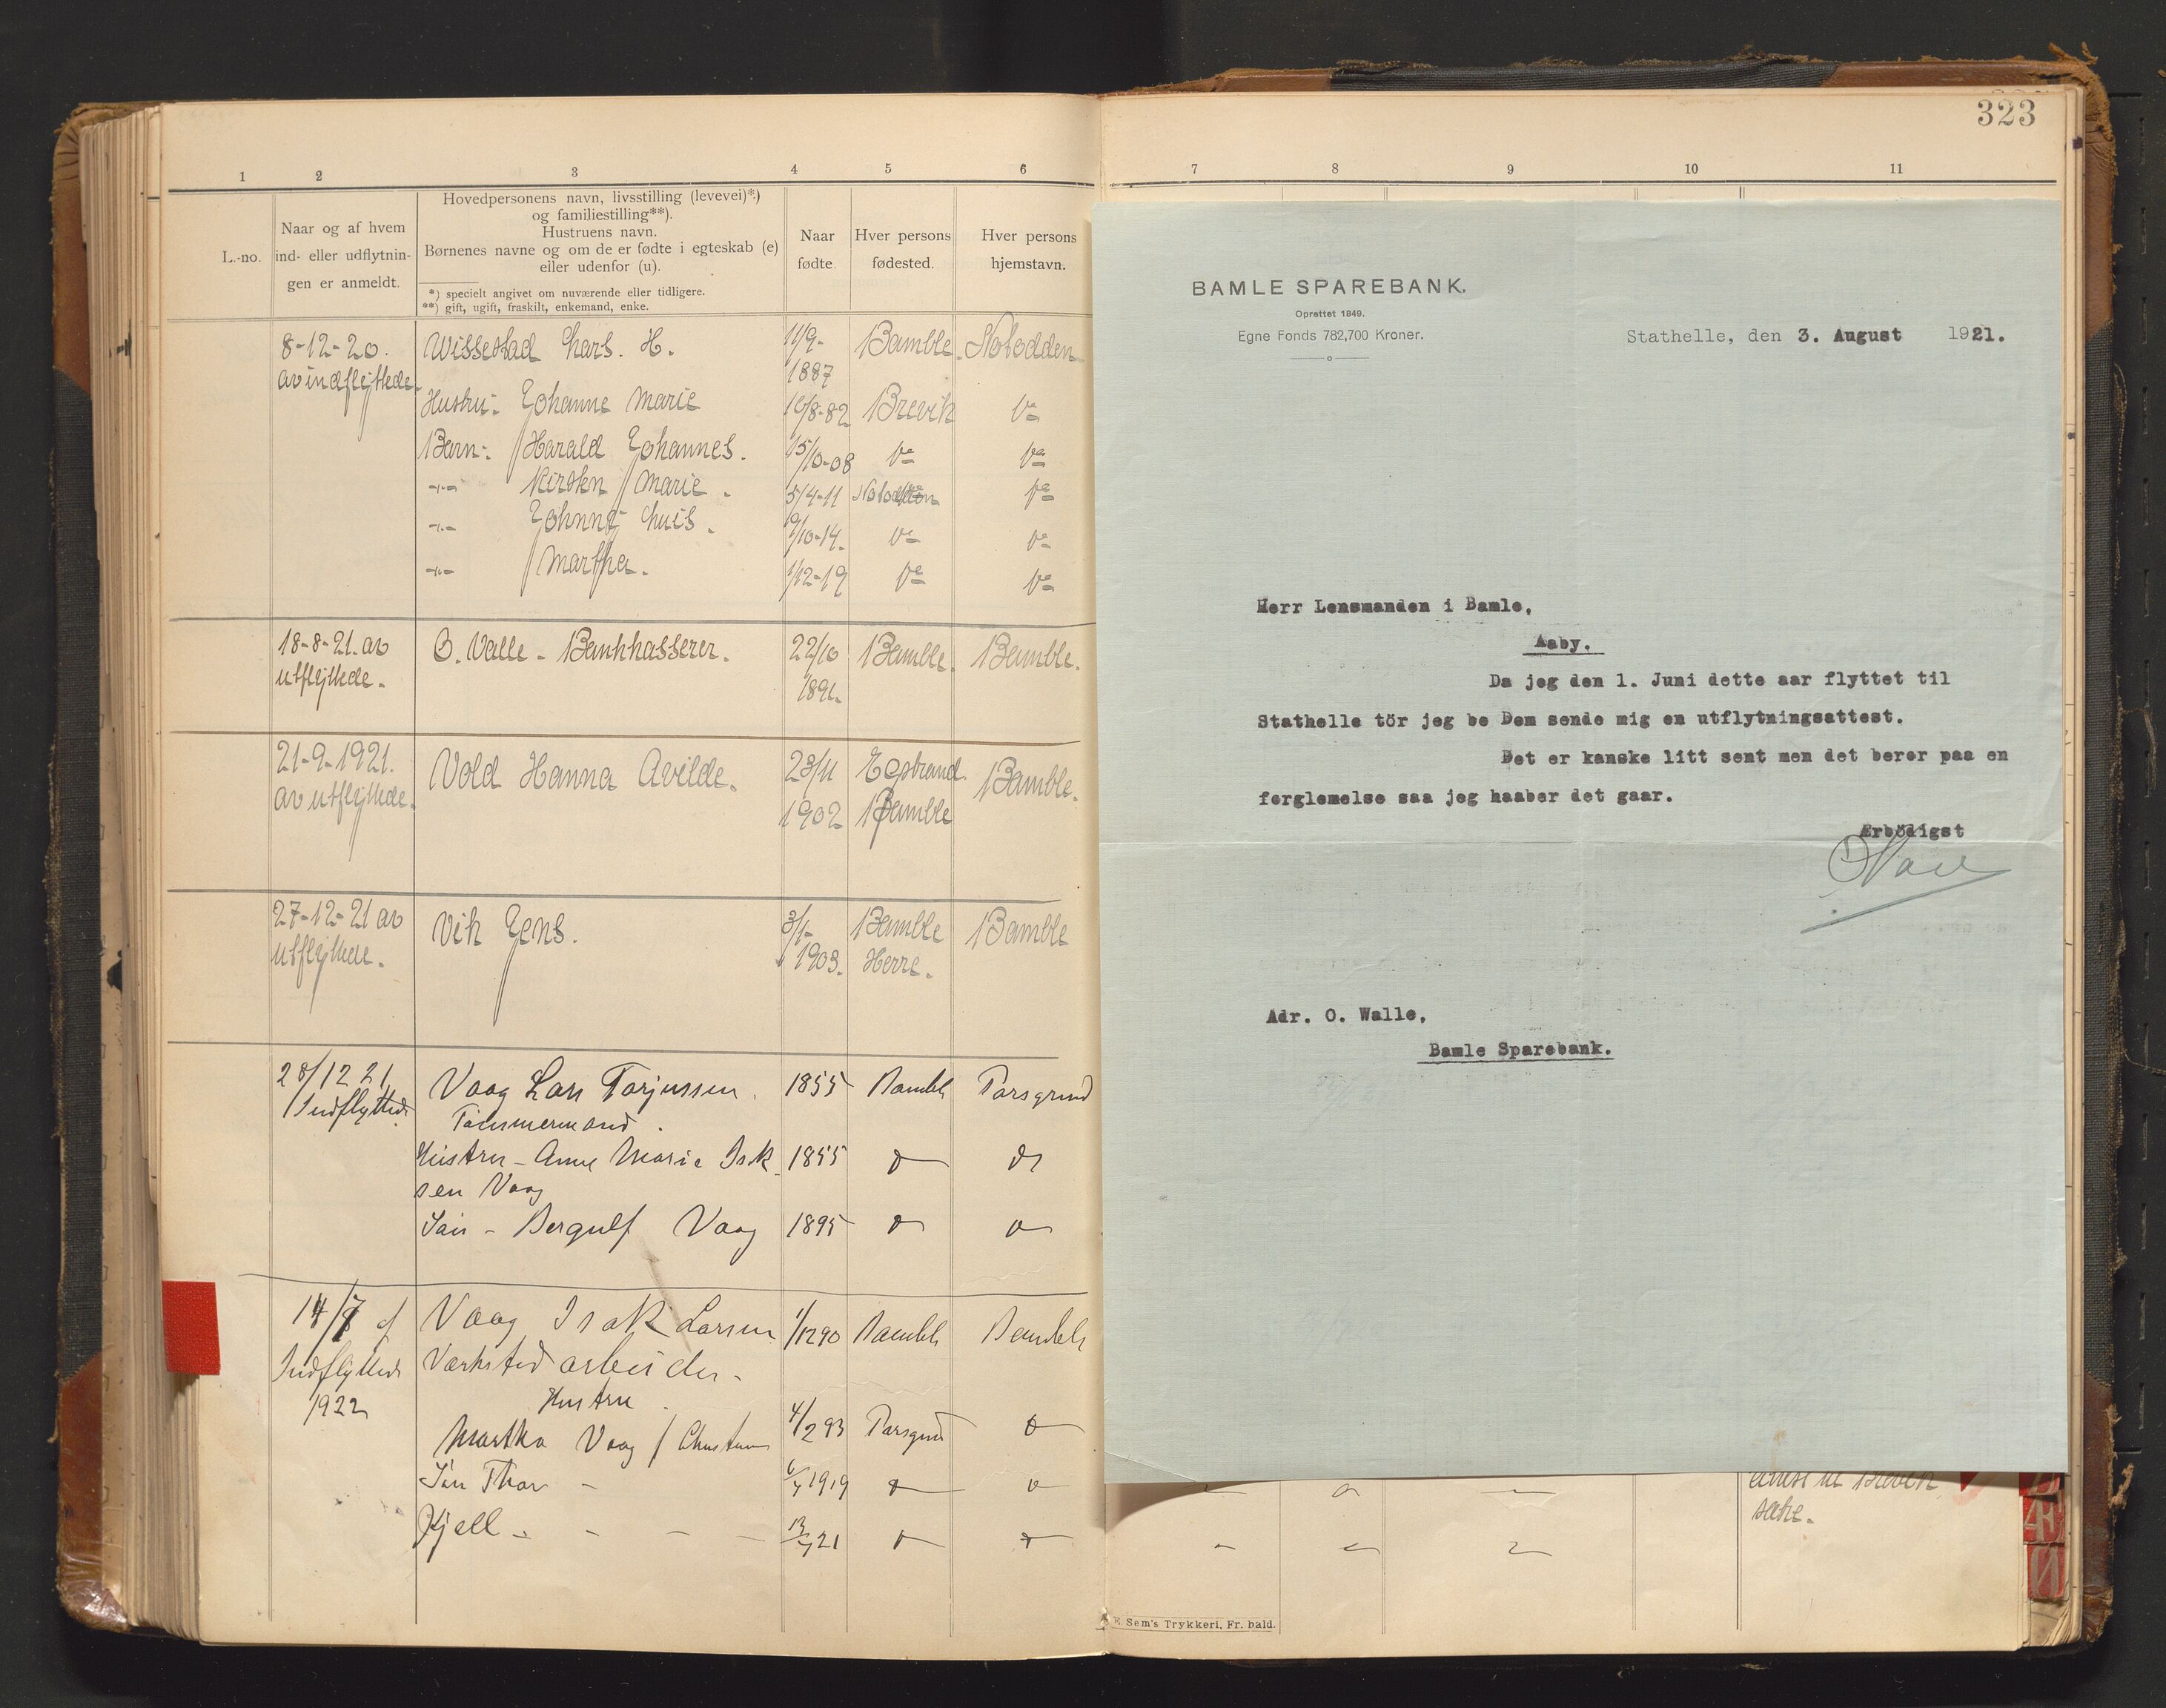 323
1 2 3 4 5 6
L.-no.
Naar og af hvem
ind- eller udflytnin-
gen er anmeldt.
Hovedpersonens navn, livsstilling (levevei)*)
og familiestilling**).
Hustruens navn.
Børnenes navne og om de er fødte i egteskab (e)
eller udenfor (u).
*) specielt angivet om nuværende eller tidligere.
**) gift, ugift, fraskilt, enkemand, enke.
Naar
fødte.
Hver persons
fødested.
Hver persons
hjemstavn.
8-12-20. Wissestad Lars. H. 11/9- Bamble. Notodden
av indflyttede. 1887
Hustru: Johanne Marie 10/8-82 Brevik do
Barn: Harald Johannes. 15/10-08 do do
-"- Kirsten Marie. 5/4-11 Notodden do
-"- Johnny Luis. 9/10-14. do do
-"- Martha. 1/12-19 do do
18-8-21. av O. Valle - Bankkasserer. 22/10 Bamble. Bamble.
utflyttede. 1891.
21-9-1921. Vold Hanna Avilde. 23/11 Eqstrand. Bamble.
av utflyttede. 1902 Bamble
27-12-21 av Vik Jens. 3/1- Bamble Bamble
utflyttede. 1903. Herre.
28/12 21 Vaag Lars Torjussen. 1855 Bamble Porsgrund
Indflyttede. Tømmermand.
Hustru - Anne Marie Isak 1855 do do
sen Vaag
Søn - Bergulf Vaag 1895 do do
14/7 af Vaag Isak Larsen 1/12 90 Bamble Bamble
Indflyttede Værkstedarbeider -
1922 Hustru.
Martha Vaag f Christens 4/2 93 Porsgrund do
Søn Thor - 1919 do do
Kjell - - - - 21 do do
7 8 9 10 11
BAMLE SPAREBANK.
Oprettet 1849.
Egne Fonds 782,700 Kroner.
Stathelle, den 3. August 1921.
Herr Lensmanden i Bamle,
Aaby.
Da jeg den 1. Juni dette aar flyttet til
Stathelle tör jeg be Dem sende mig en utflytningsattest.
Det er kanske litt sent men det beror paa en
forglemelse saa jeg haaber det gaar.
Ærbödigst
OWalle
Adr. O. Walle,
Bamle Sparebank.
attest til Brevik
sake.
E. Sem's Trykkeri, Fr. hald.
Æ